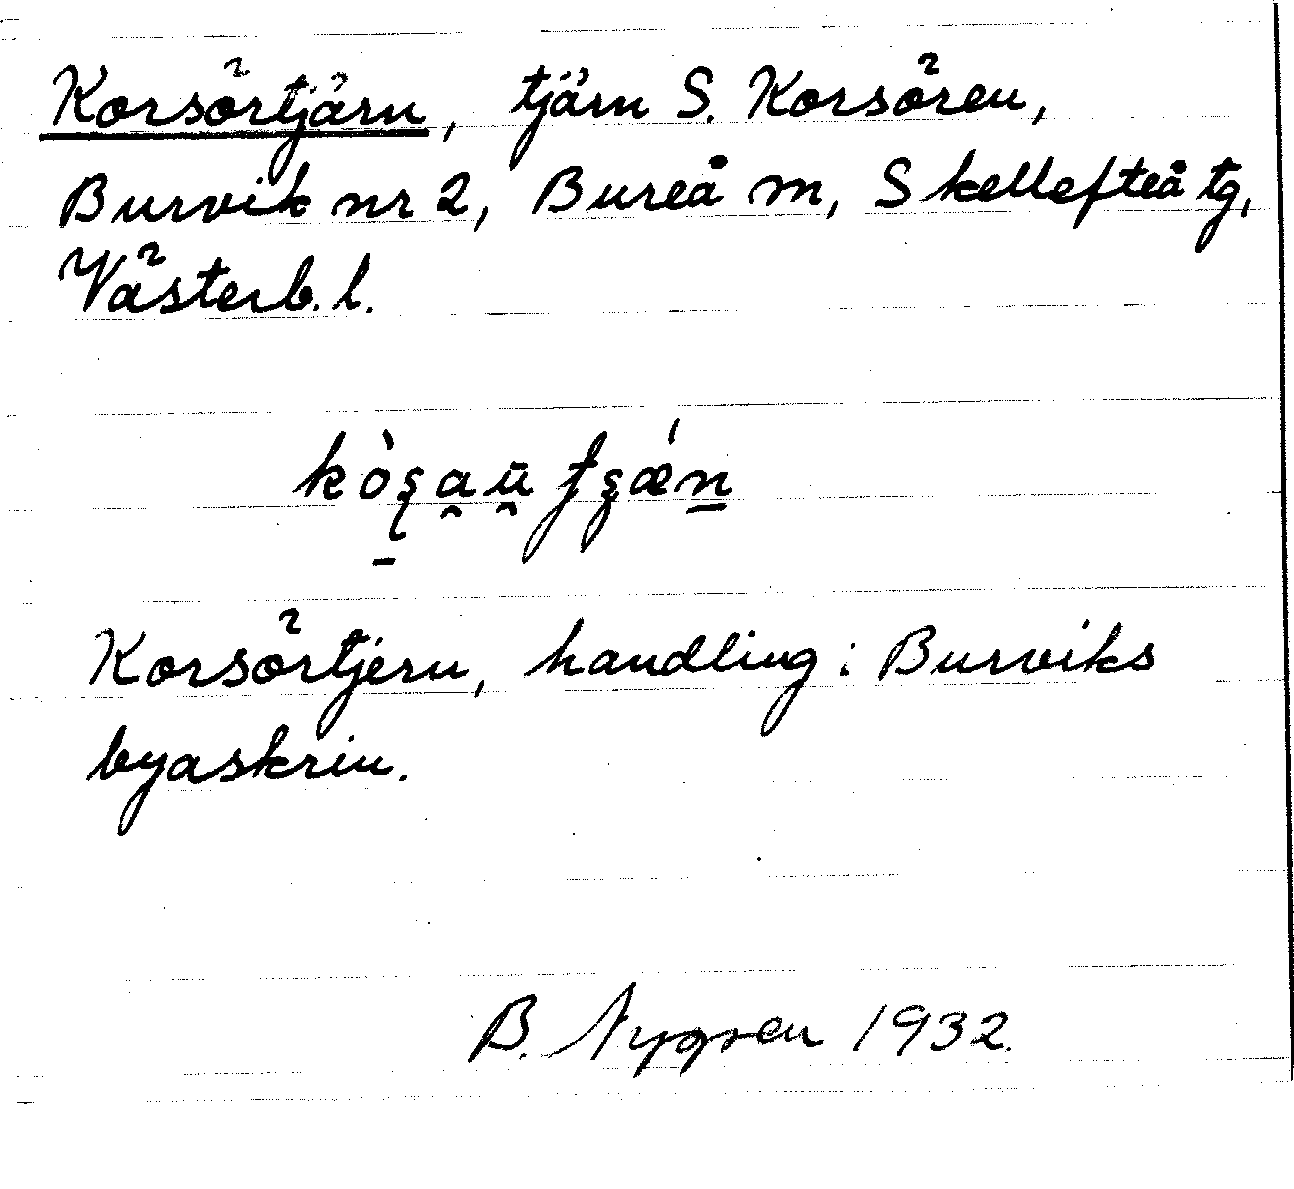 Korsörtjärn, tjärn S. Korsören,
Burvik nr 2, Bureå m, Skellefteå tg,
Västerb. l.
Korsörtjern, handling i Burviks
byaskrin.
B. Nygren 1932.